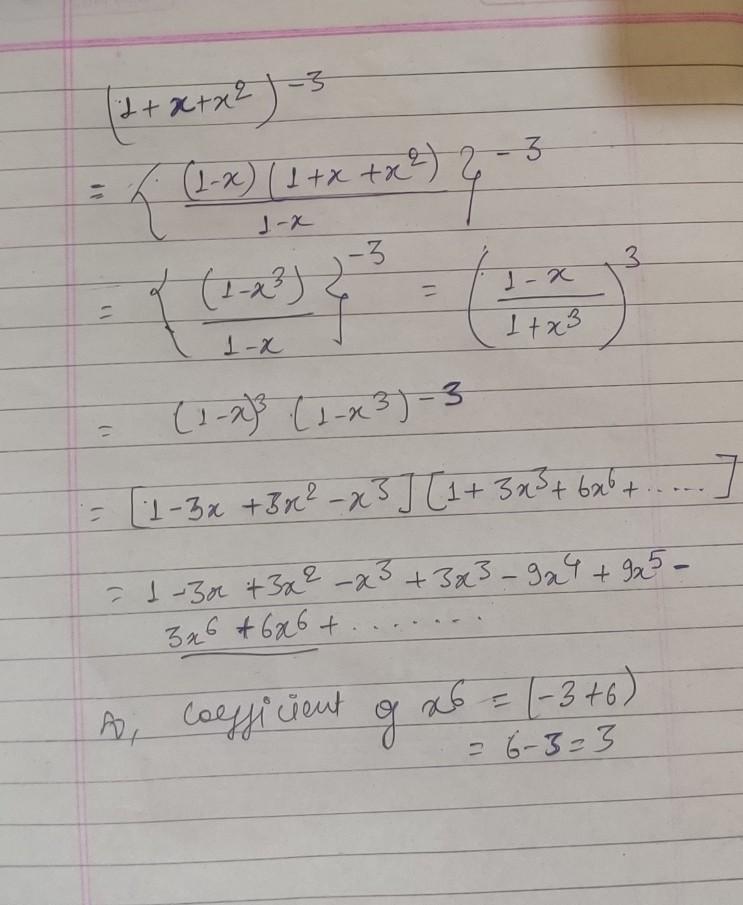 (1+x+x²)⁻³
= { (1-x)(1+x+x²) / 1-x }⁻³
= { (1-x³) / 1-x }⁻³ = ( 1-x / 1+x³ )³
= (1-x)³ · (1-x³)⁻³
= [1-3x+3x²-x³] [1+3x³+6x⁶+......]
= 1-3x+3x²-x³+3x³-9x⁴+9x⁵-
3x⁶+6x⁶+........
coefficient of x⁶ = (-3+6)
= 6-3=3